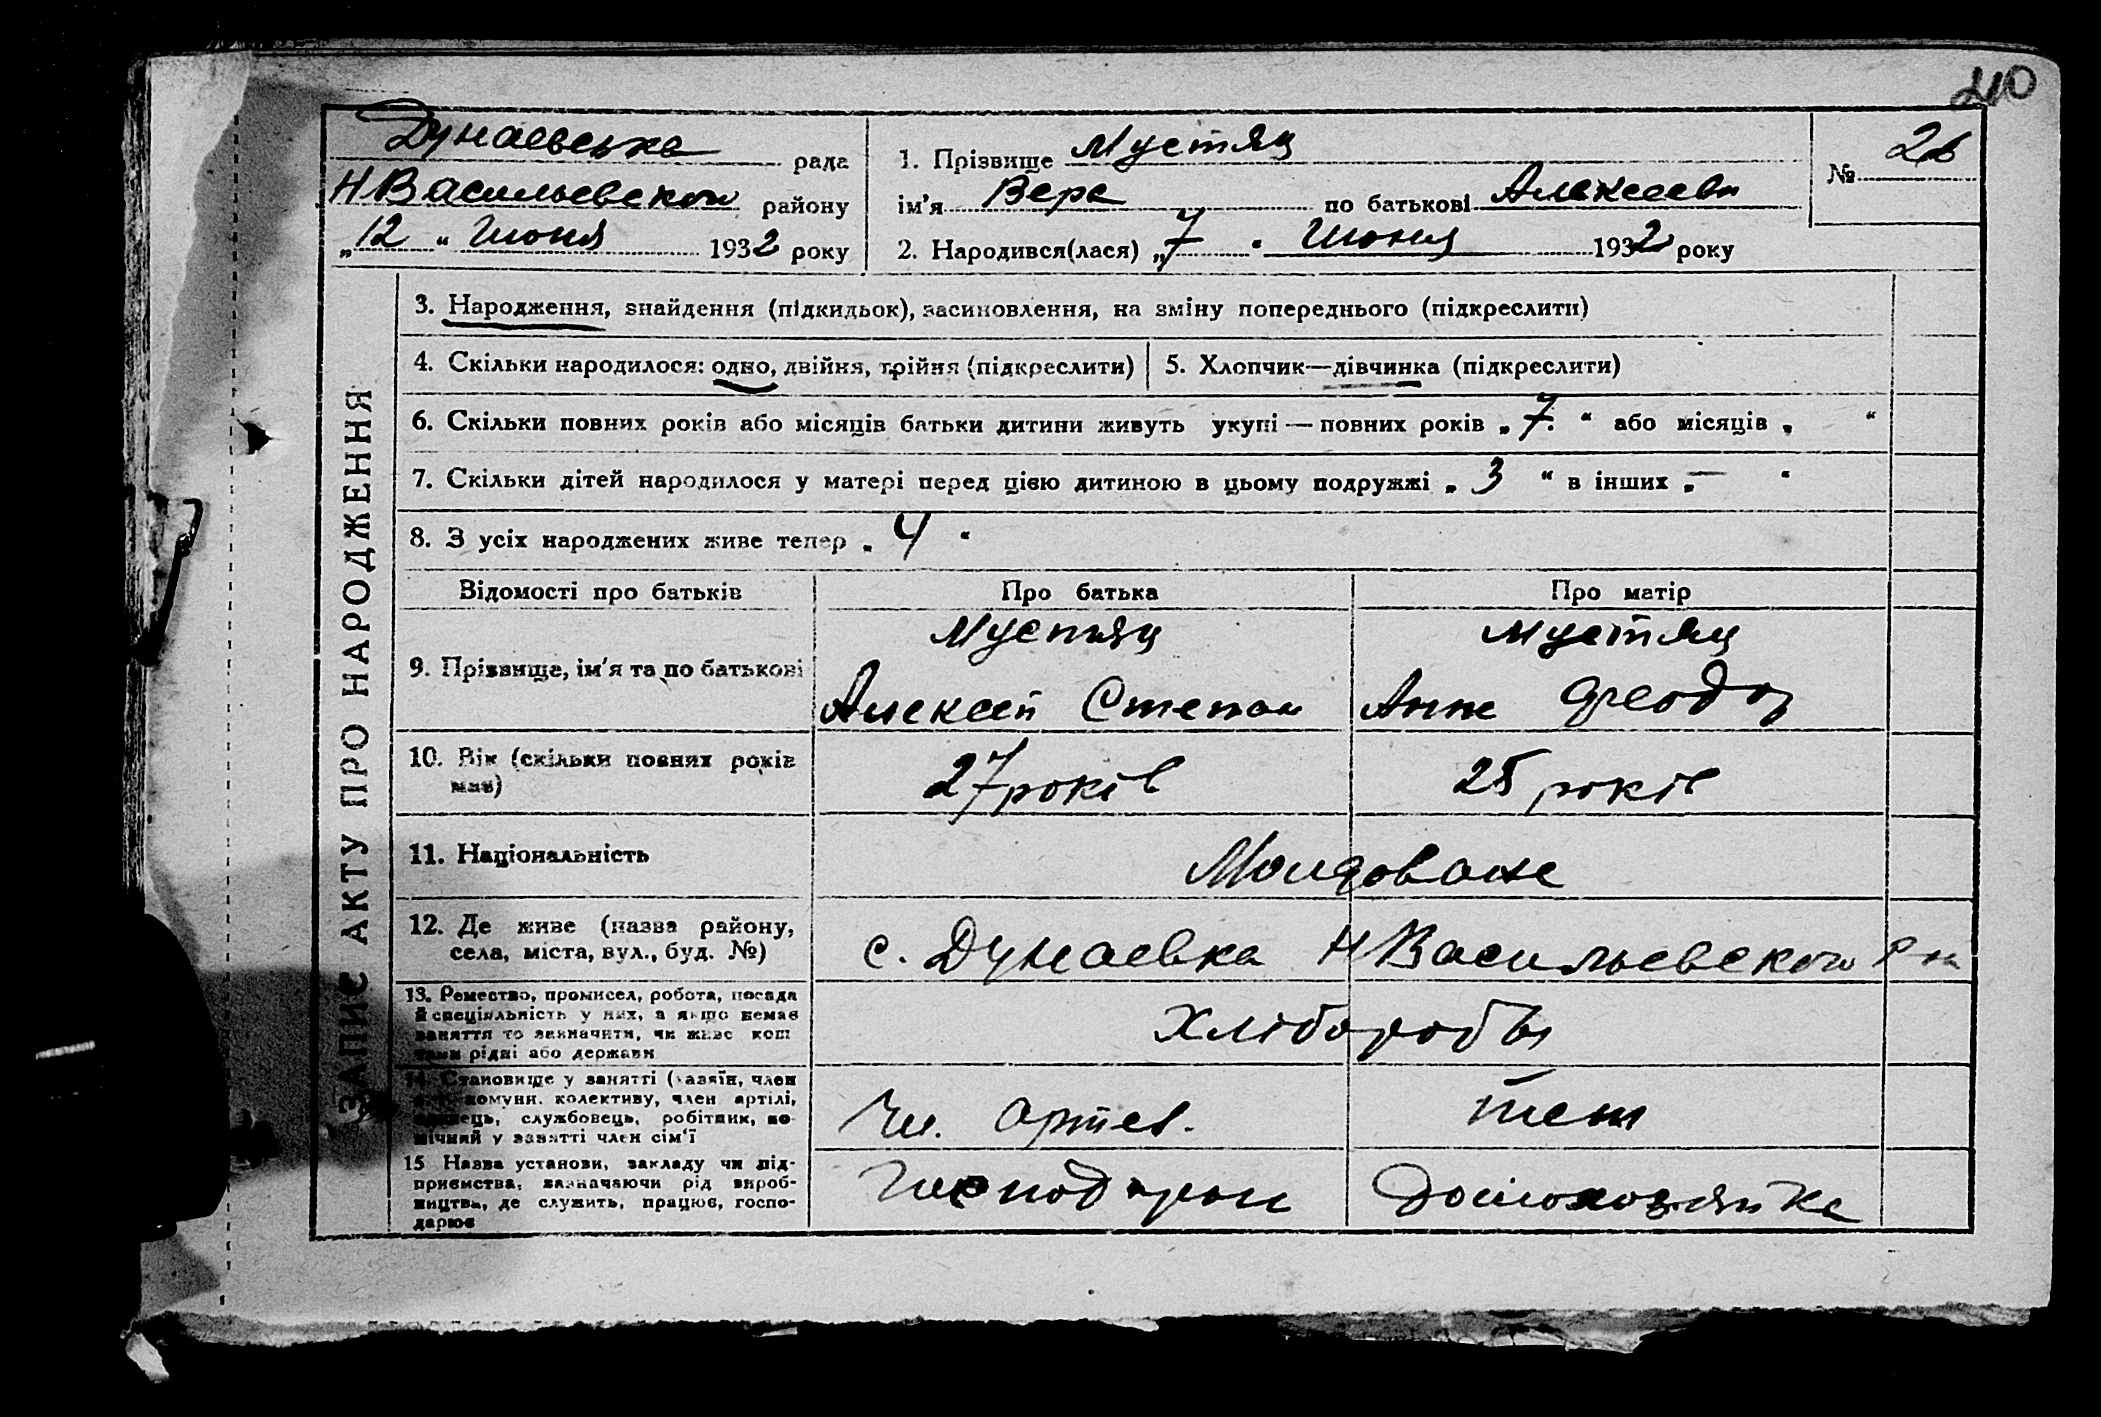 210
Дунаевська рада
НВасильевского району
„12" Июня 1932 року
1. Прізвище Мустяц
ім'я Вера по батькові Алексеевн
2. Народився(лася) „7" Июня 1932 року
№ 26
ЗАПИС АКТУ ПРО НАРОДЖЕННЯ
3. Народження, знайдення (підкидьок), засиновлення, на зміну попереднього (підкреслити)
4. Скільки народилося: одно, двійня, трійня (підкреслити)
5. Хлопчик—дівчинка (підкреслити)
6. Скільки повних років або місяців батьки дитини живуть укупі — повних років „7" або місяців „ "
7. Скільки дітей народилося у матері перед цією дитиною в цьому подружжі „3" в інших „—"
8. З усіх народжених живе тепер „4"
Відомості про батьків
Про батька
Про матір
9. Прізвище, ім'я та по батькові
Мустяц
Алексей Степан
Мустяц
Анна Феодор
10. Вік (скільки повних років
мав)
27 років
25 років
11. Національність
Молдоване
12. Де живе (назва району,
села, міста, вул., буд. №)
с. Дунаевка НВасильевского Р на
13. Ремество, промисел, робота, посада
й спеціяльність у них, а якщо немає
заняття то зазначити, чи живе кош
тами рідні або держави
Хлібороби
14. Становище у занятті (хазяїн, член
комуни, колективу, член артілі,
службовець, робітник, по-
мічний у занятті член сім'ї
Чл. артел.
тож
15 Назва установи, закладу чи під-
приємства, зазначаючи рід вироб-
ництва, де служить, працює, госпо-
дарює
Домохозяйка